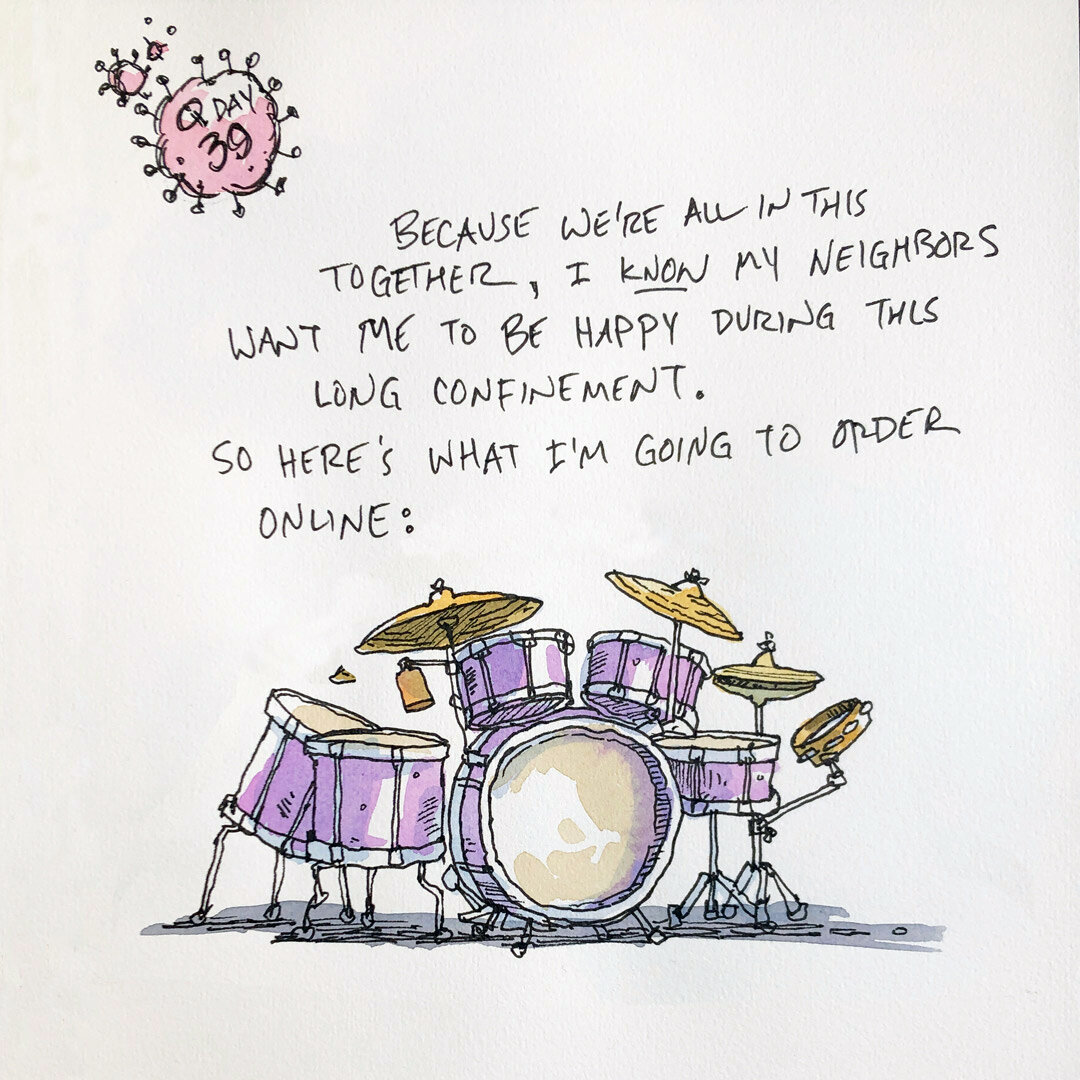 Q DAY
39
BECAUSE WE'RE ALL IN THIS
TOGETHER, I KNOW MY NEIGHBORS
WANT ME TO BE HAPPY DURING THIS
LONG CONFINEMENT.
SO HERE'S WHAT I'M GOING TO ORDER
ONLINE: